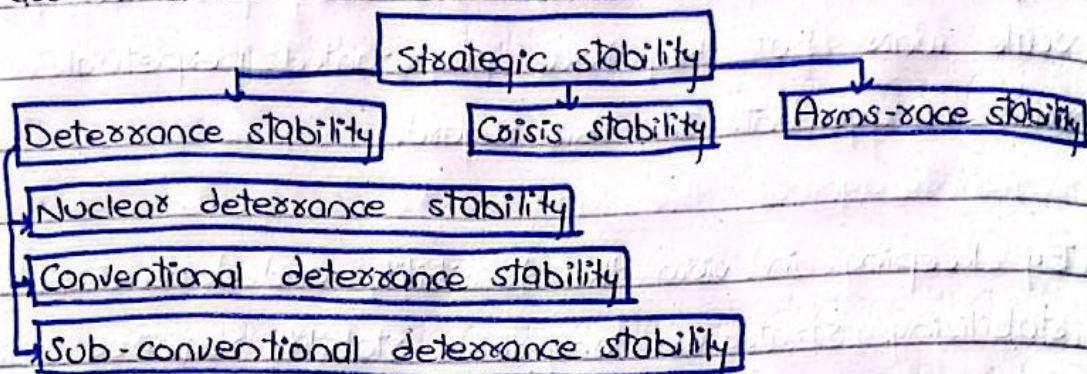 Strategic stability
Deterrance stability
Crisis stability
Arms-race stability
Nuclear deterrance stability
Conventional deterrance stability
Sub-conventional deterrance stability